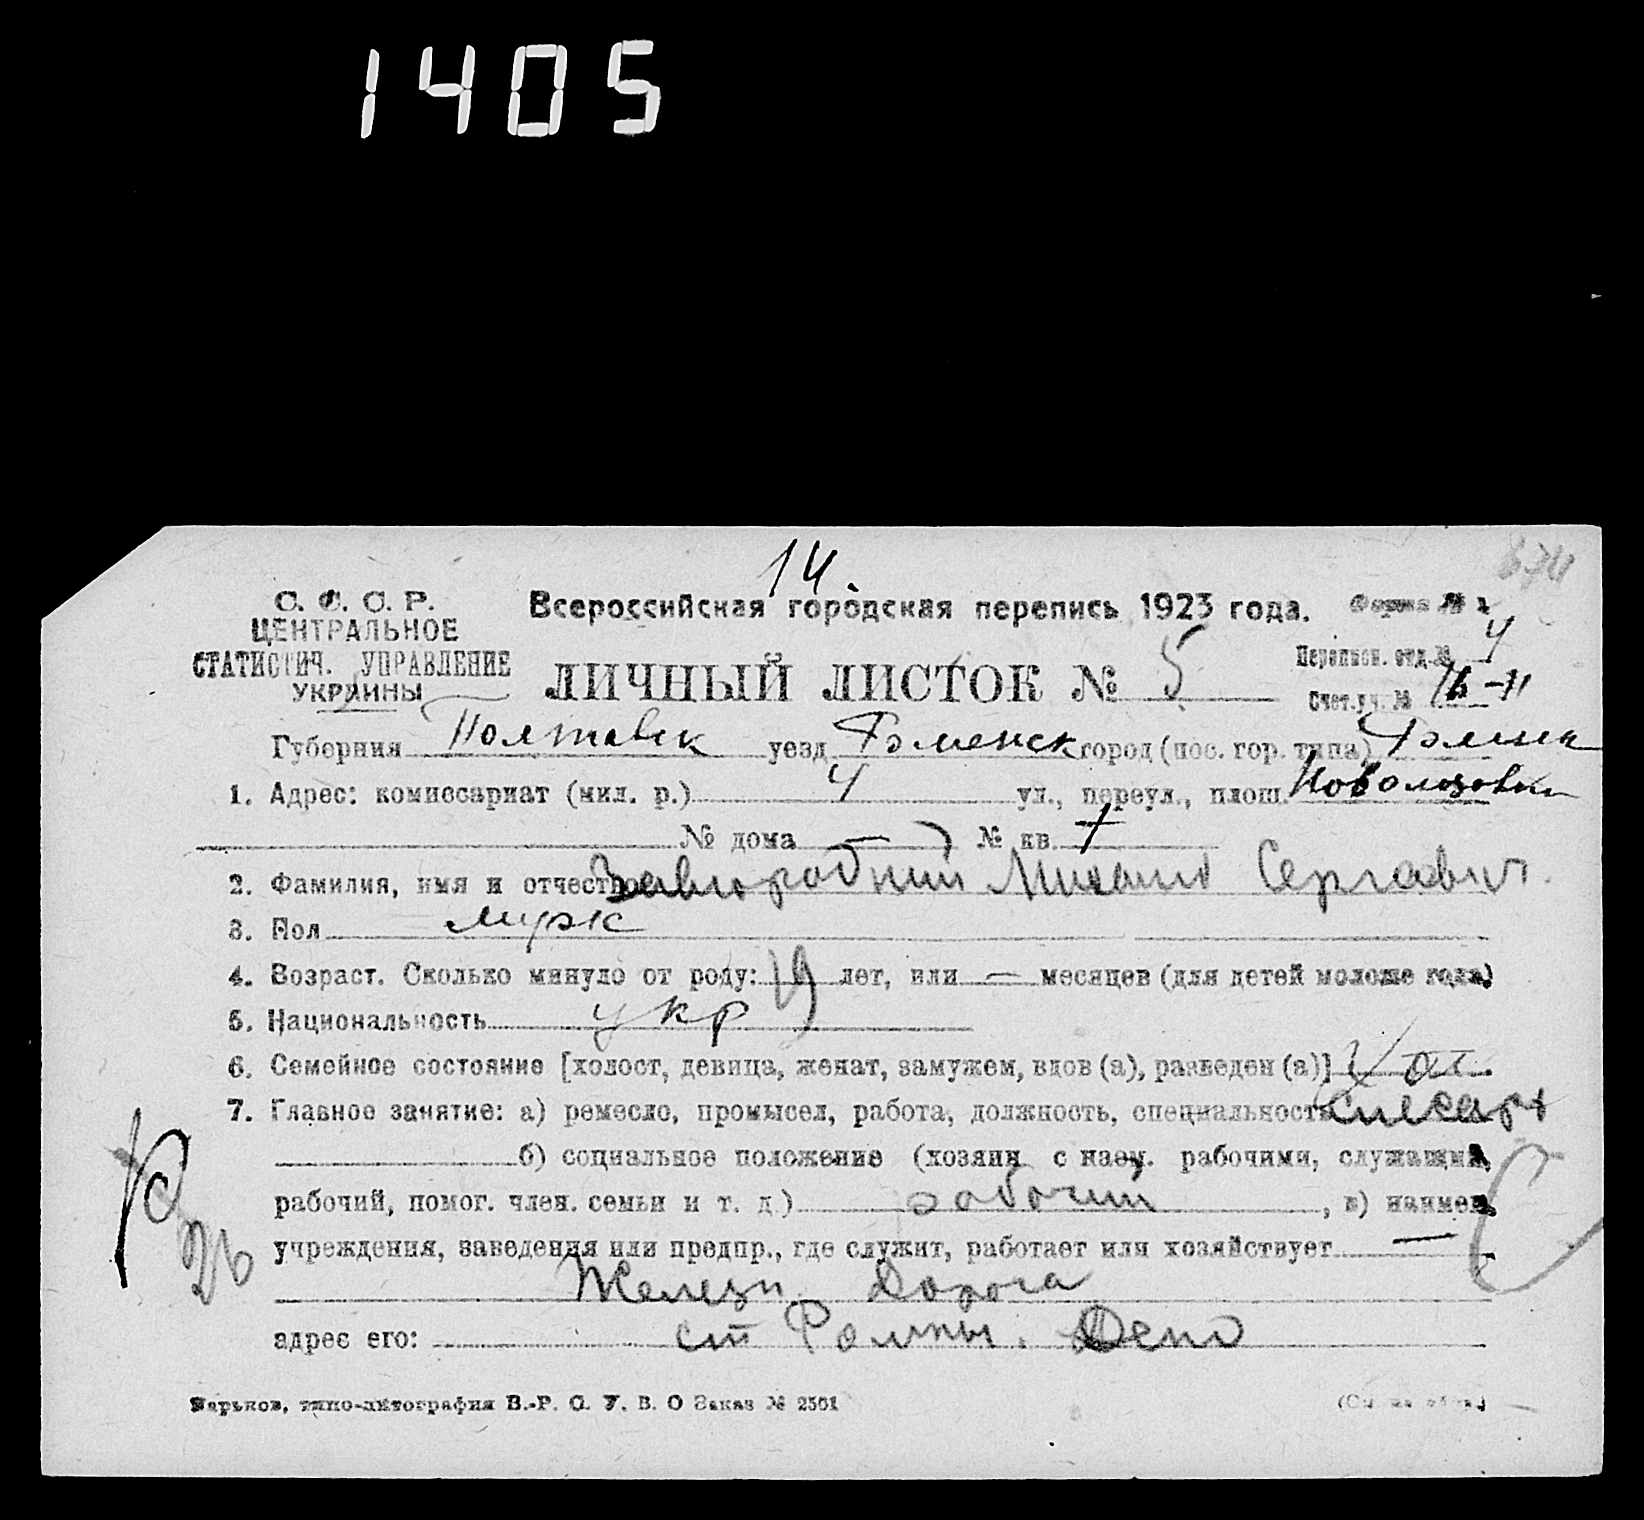 1405
14.
674
С. С. С. Р.
ЦЕНТРАЛЬНОЕ
СТАТИСТИЧ. УПРАВЛЕНИЕ
УКРАИНЫ
Всероссийская городская перепись 1923 года.
Форма № 1
ЛИЧНЫЙ ЛИСТОК № 5
Переписн. отд. № 4
Счет. уч. №
Губерния Полтавск уезд Роменск город (пос. гор. типа) Ромны
1. Адрес: комиссариат (мил. р.) 4 ул., переул., площ.
№ дома — № кв.
2. Фамилия, имя и отчество Завгородний Михаил Сергеевич.
3. Пол мужс
4. Возраст. Сколько минуло от роду: 19 лет, или — месяцев (для детей моложе года)
5. Национальность укр
6. Семейное состояние [холост, девица, женат, замужем, вдов (а), разведен (а)] хол.
7. Главное занятие: а) ремесло, промысел, работа, должность, специальность слесарь
б) социальное положение (хозяин с наем. рабочими, служащий,
рабочий, помог. член. семьи и т. д.) рабочий, в) наимен.
учреждения, заведения или предпр., где служит, работает или хозяйствует —
26
Железн. Дорога
адрес его: ст Ромны. Депо
Харьков, типо-литография В.-Р. С. У. В. О Заказ № 2501
(См. на обор.)